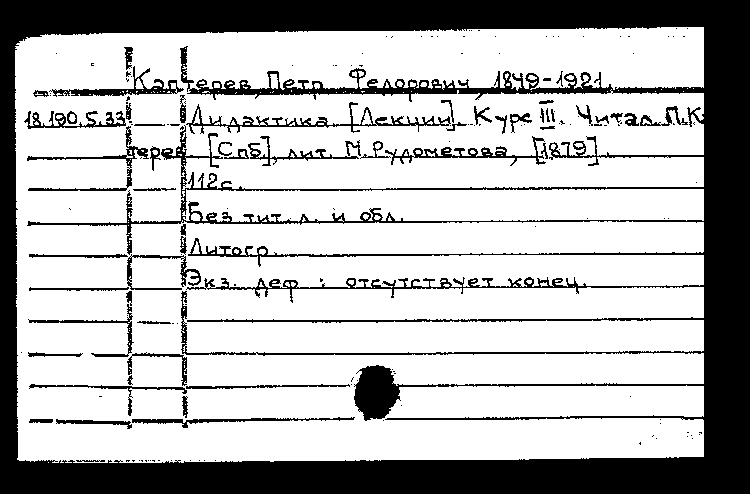 Каптерев, Петр Федорович, 1849-1921.
18.190.5.33 Дидактика [Лекции]. Курс III. Читал П.Ка
терев [Спб], лит. М. Рудометова, [1879].
112с.
Без тит. л. и обл.
Литогр.
Экз. деф : отсутствует конец.